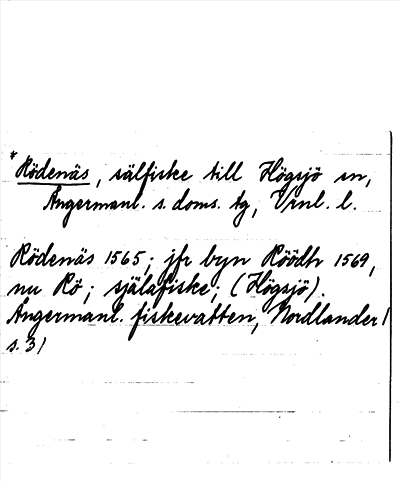 * Rödenäs, sälfiske till Högsjö sn,
Ångermanl. s. doms. tg, Vrnl. l.
Rödenäs 1565; jfr byn Röödh 1569,
nu Rö; själafiske; (Högsjö).
Ångermanl. fiskevatten, Nordlander/
s. 3/